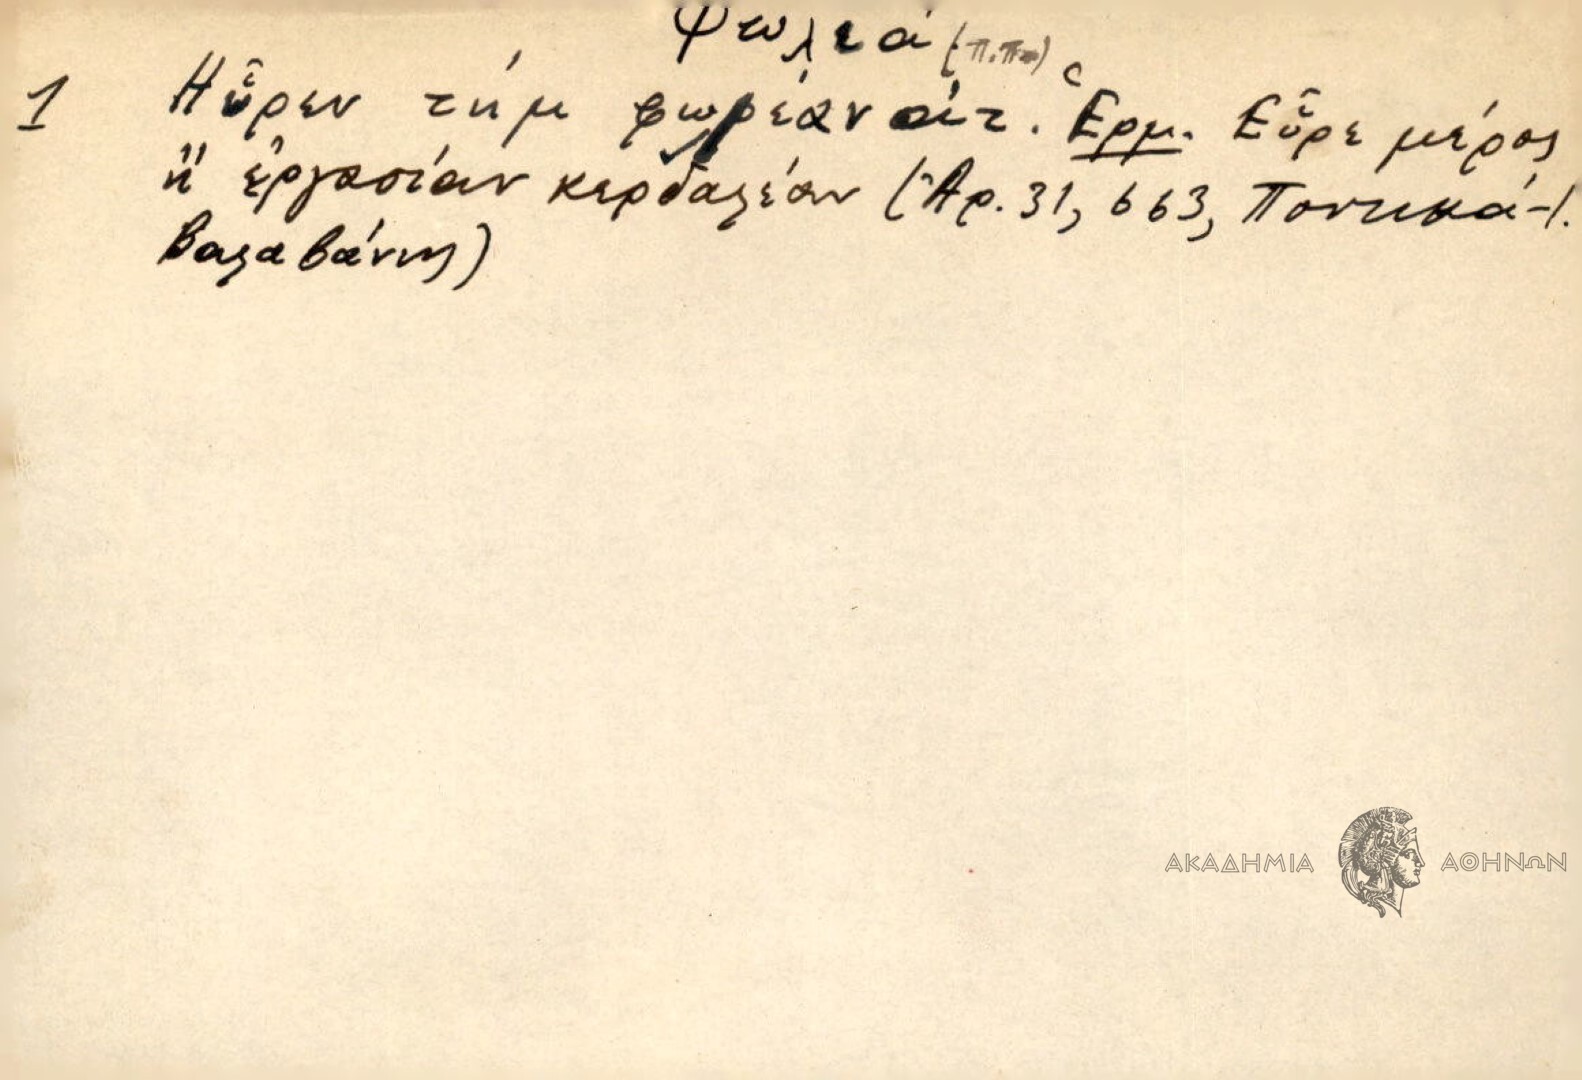 Φωλεά (π.π.)
1 Ηὗρεν τὴμ φωλέαν ἀτ. Ἑρμ. Εὗρε μέρος
ἢ ἐργασίαν κερδαλέαν (Ἀρ. 31, 663, Ποντικά - Ι.
Βαλαβάνης)
ΑΚΑΔΗΜΙΑ ΑΘΗΝΩΝ